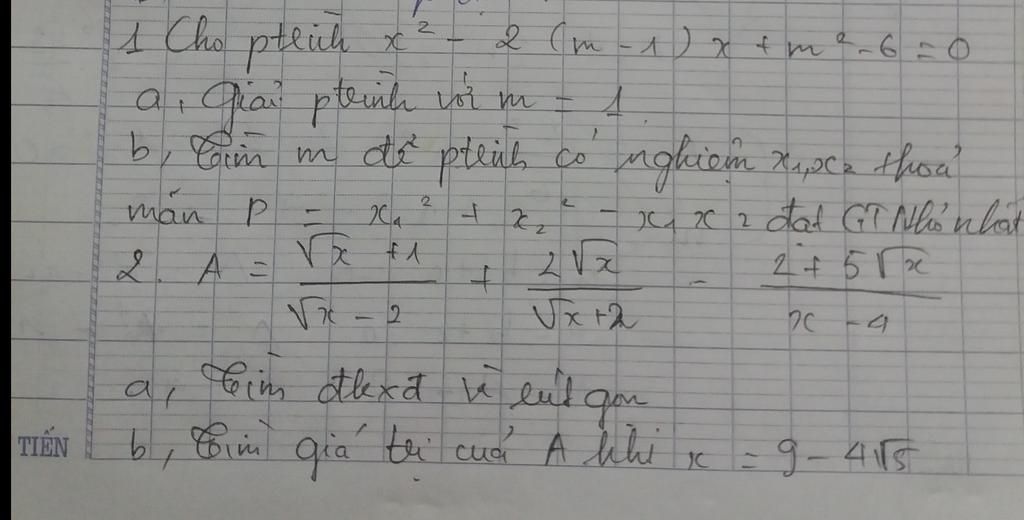 1 Cho ptrình x² - 2 (m - 1) x + m² - 6 = 0
a, Giải ptrình với m = 1
b, Tìm m để ptrình có nghiệm x₁, x₂ thoả
mãn P = x₁² + x₂² - x₁ x₂ đạt GT Nhỏ nhất
2. A = (√x + 1)/(√x - 2) + (2√x)/(√x + 2) - (2 + 5√x)/(x - 4)
a, Tìm đkxđ và rút gọn
TIẾN
b, Tìm giá trị của A khi x = 9 - 4√5